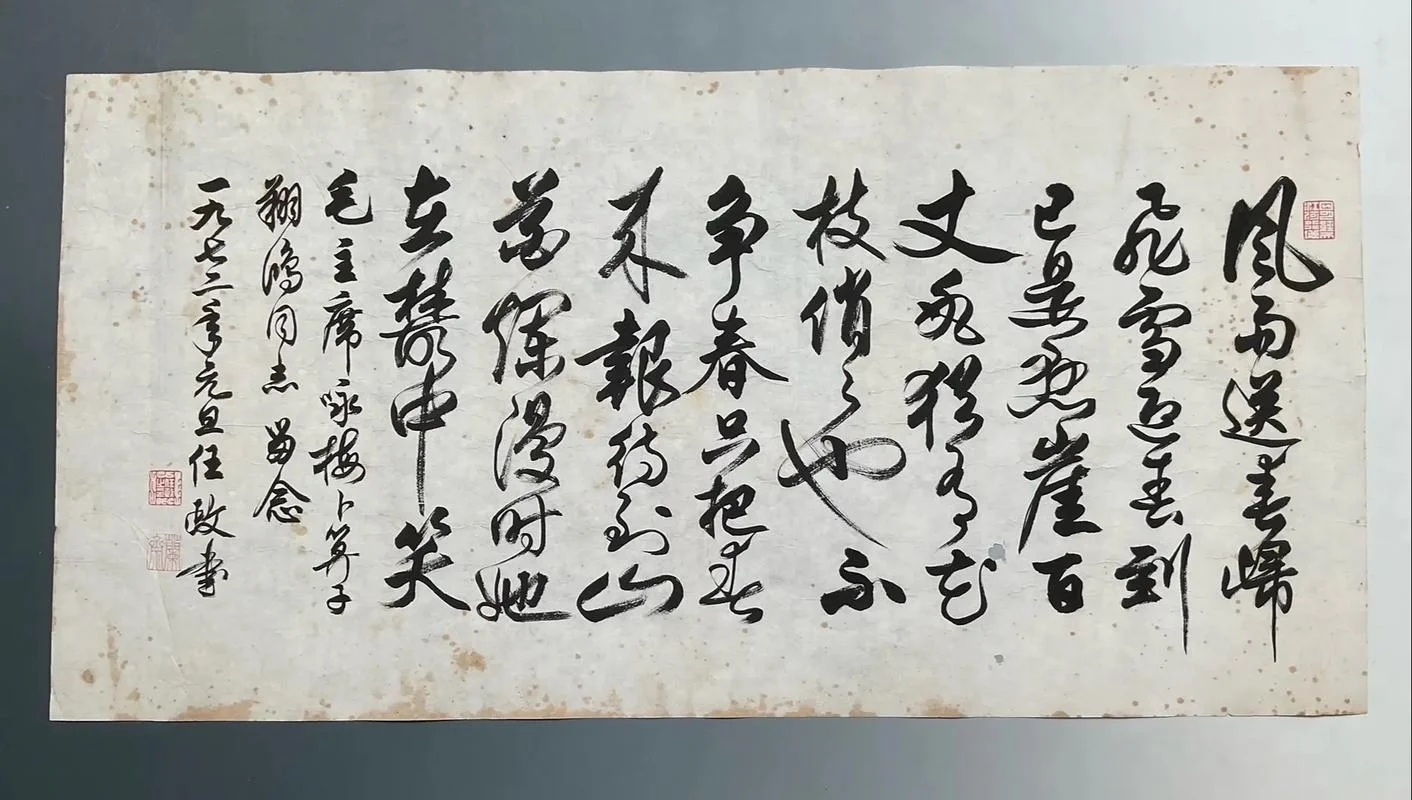 風雨送春歸
飛雪迎春到
已是懸崖百
丈冰猶有花
枝俏々也不
争春只把春
来報待到山
花爛漫时她
在叢中笑
毛主席咏梅卜算子
翔鴻同志留念
一九七三年元旦任政書